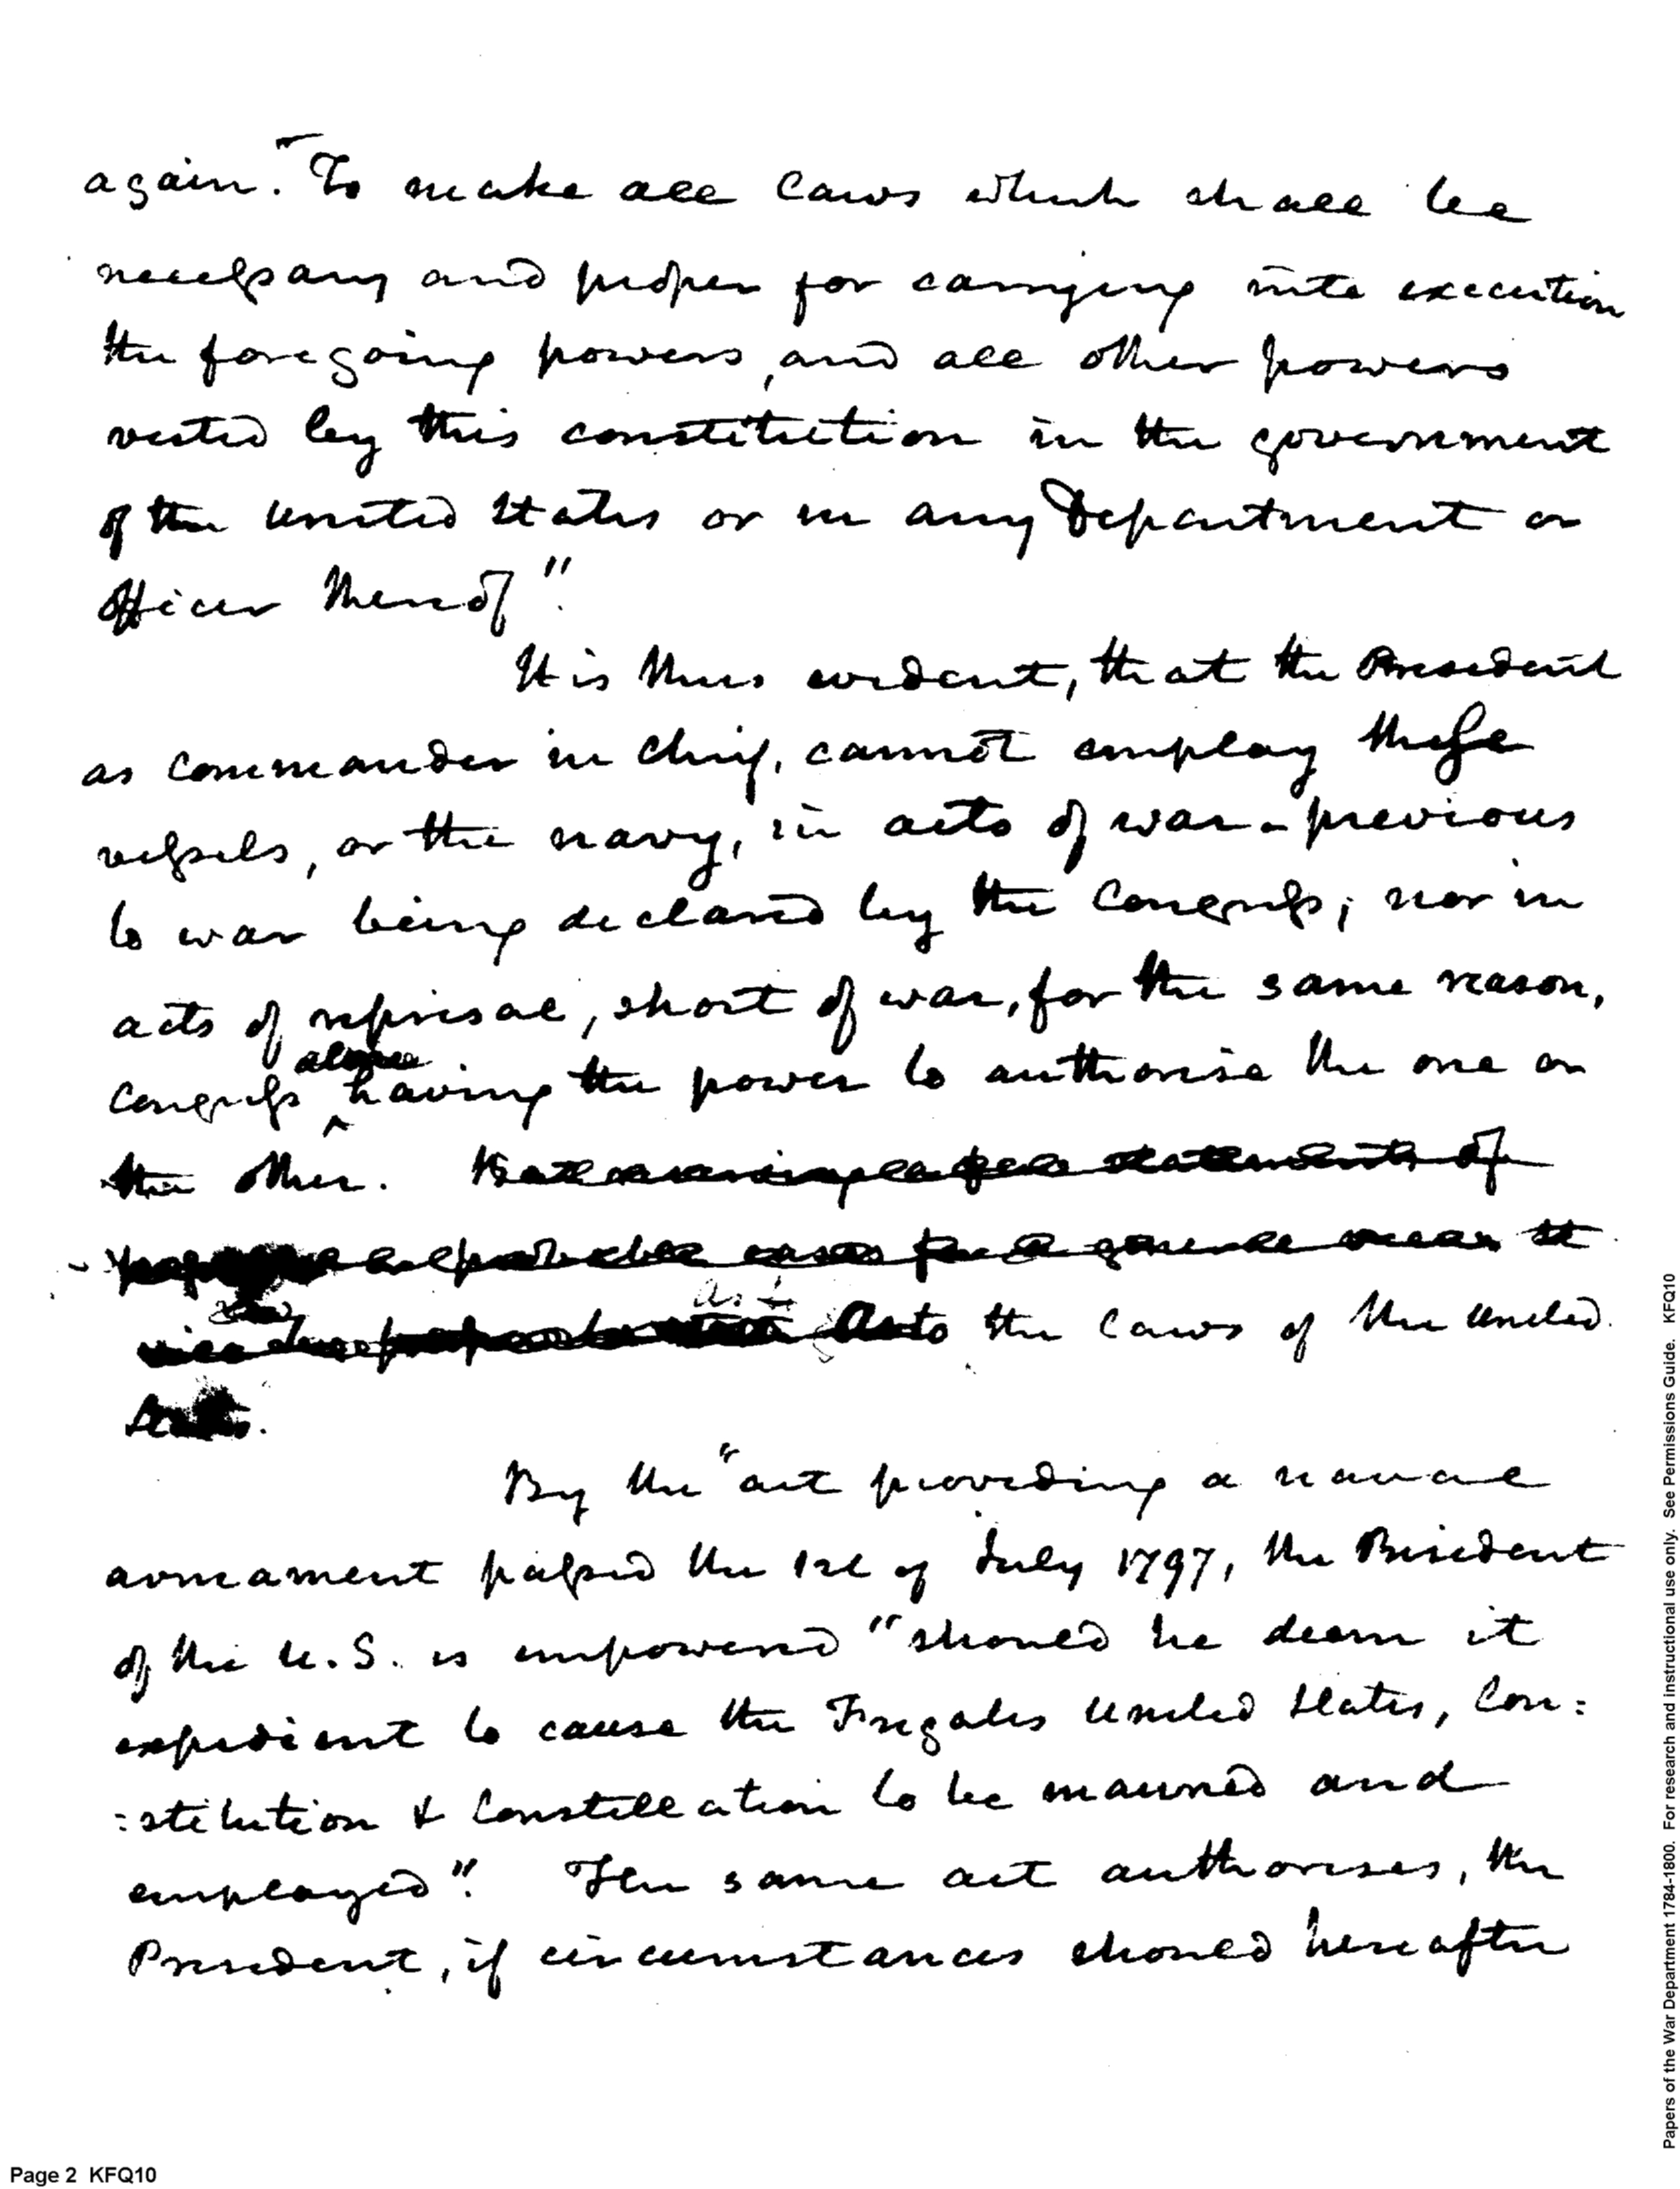 again. "To make all laws which shall be
necessary and proper for carrying into execution
the foregoing powers, and all other powers
vested by this constitution in the government
of the United States or in any Department or
officer thereof".
It is thus evident, that the President
as commander in chief, cannot employ these
vessels, or the navy, in acts of war previous
to war being declared by the Congress; nor in
acts of reprisal, short of war, for the same reason,
alone
Congress ^ having the power to authorise the one or
the other. statements of
cases general
As to the laws of the United
States.
By the "act providing a naval
armament passed the 1st of July 1797, the President
of the U.S. is empowered "should he deem it
expedient to cause the Frigates United States, Con:
:stitution & Constellation to be manned and
employed". The same act authorises, the
President, if circumstances should hereafter
Page 2 KFQ10
Papers of the War Department 1784-1800. For research and instructional use only. See Permissions Guide. KFQ10